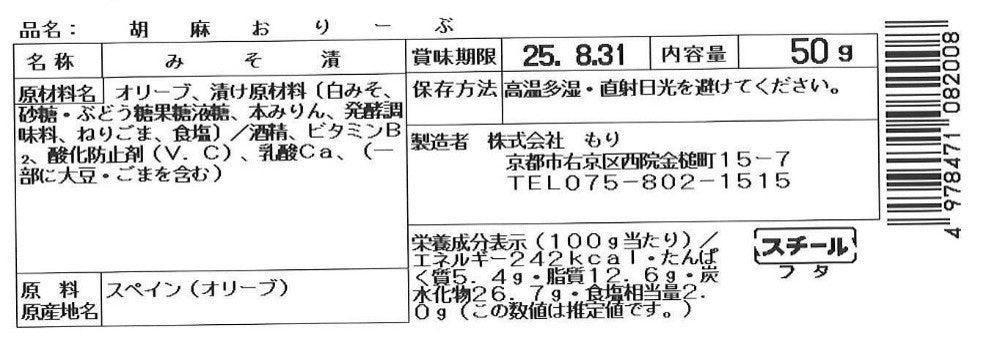 品名： 胡麻おりーぶ
名称 みそ漬
賞味期限 25. 8.31 内容量 50g
原材料名 オリーブ、漬け原材料〔白みそ、
砂糖・ぶどう糖果糖液糖、本みりん、発酵調
味料、ねりごま、食塩〕／酒精、ビタミンB
2、酸化防止剤（V．C）、乳酸Ca、（一
部に大豆・ごまを含む）
保存方法 高温多湿・直射日光を避けてください。
製造者 株式会社 もり
京都市右京区西院金槌町15－7
TEL075－802－1515
原料
原産地名 スペイン（オリーブ）
栄養成分表示（100g当たり）／
エネルギー242kcal・たんぱ
く質5．4g・脂質12．6g・炭
水化物26．7g・食塩相当量2．
0g（この数値は推定値です。）
スチール
フタ
4 978471 082008